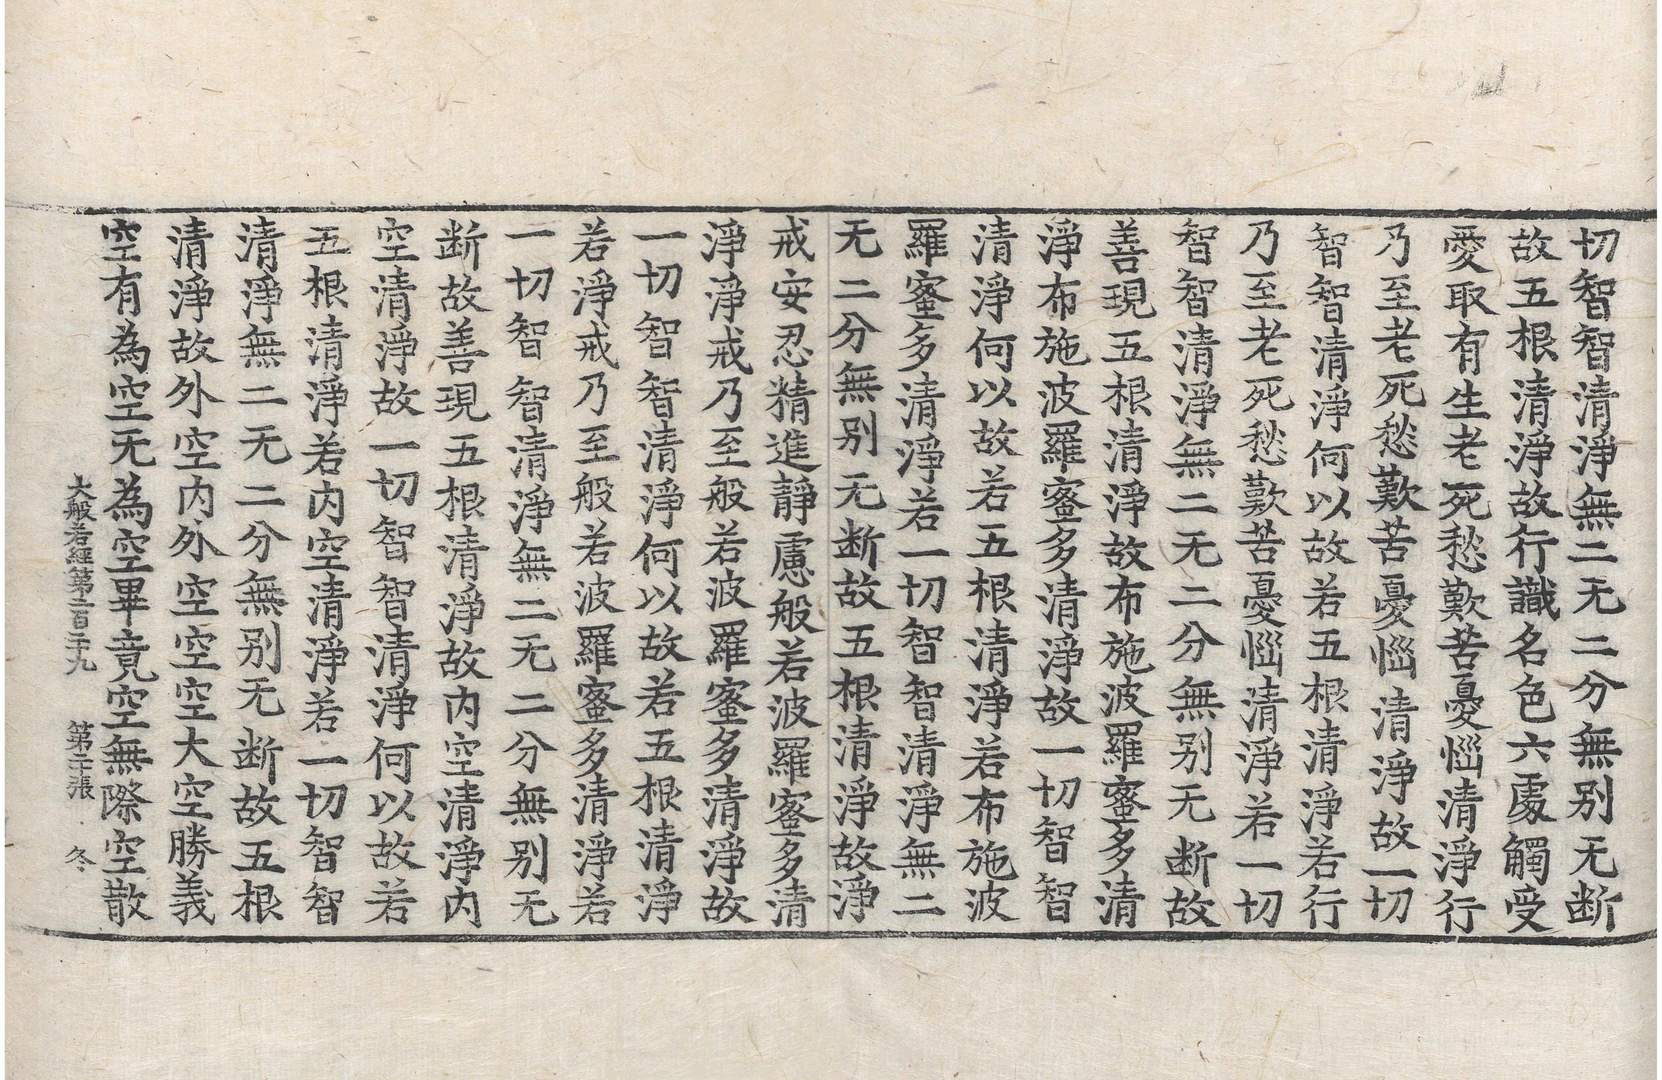 切智智清淨無二无二分無別无断
故五根清淨故行識名色六處觸受
愛取有生老死愁歎苦憂惱清淨行
乃至老死愁歎苦憂惱清淨故一切
智智清淨何以故若五根清淨若行
乃至老死愁歎苦憂惱清淨若一切
智智清淨無二无二分無別无断故
善現五根清淨故布施波羅蜜多清
淨布施波羅蜜多清淨故一切智智
清淨何以故若五根清淨若布施波
羅蜜多清淨若一切智智清淨無二
无二分無別无断故五根清淨故淨
戒安忍精進靜慮般若波羅蜜多清
淨淨戒乃至般若波羅蜜多清淨故
一切智智清淨何以故若五根清淨
若淨戒乃至般若波羅蜜多清淨若
一切智智清淨無二无二分無別无
断故善現五根清淨故内空清淨内
空清淨故一切智智清淨何以故若
五根清淨若内空清淨若一切智智
清淨無二无二分無別无断故五根
清淨故外空内外空空空大空勝義
空有為空无為空畢竟空無際空散
大般若經第二百二十九 第二十張 冬